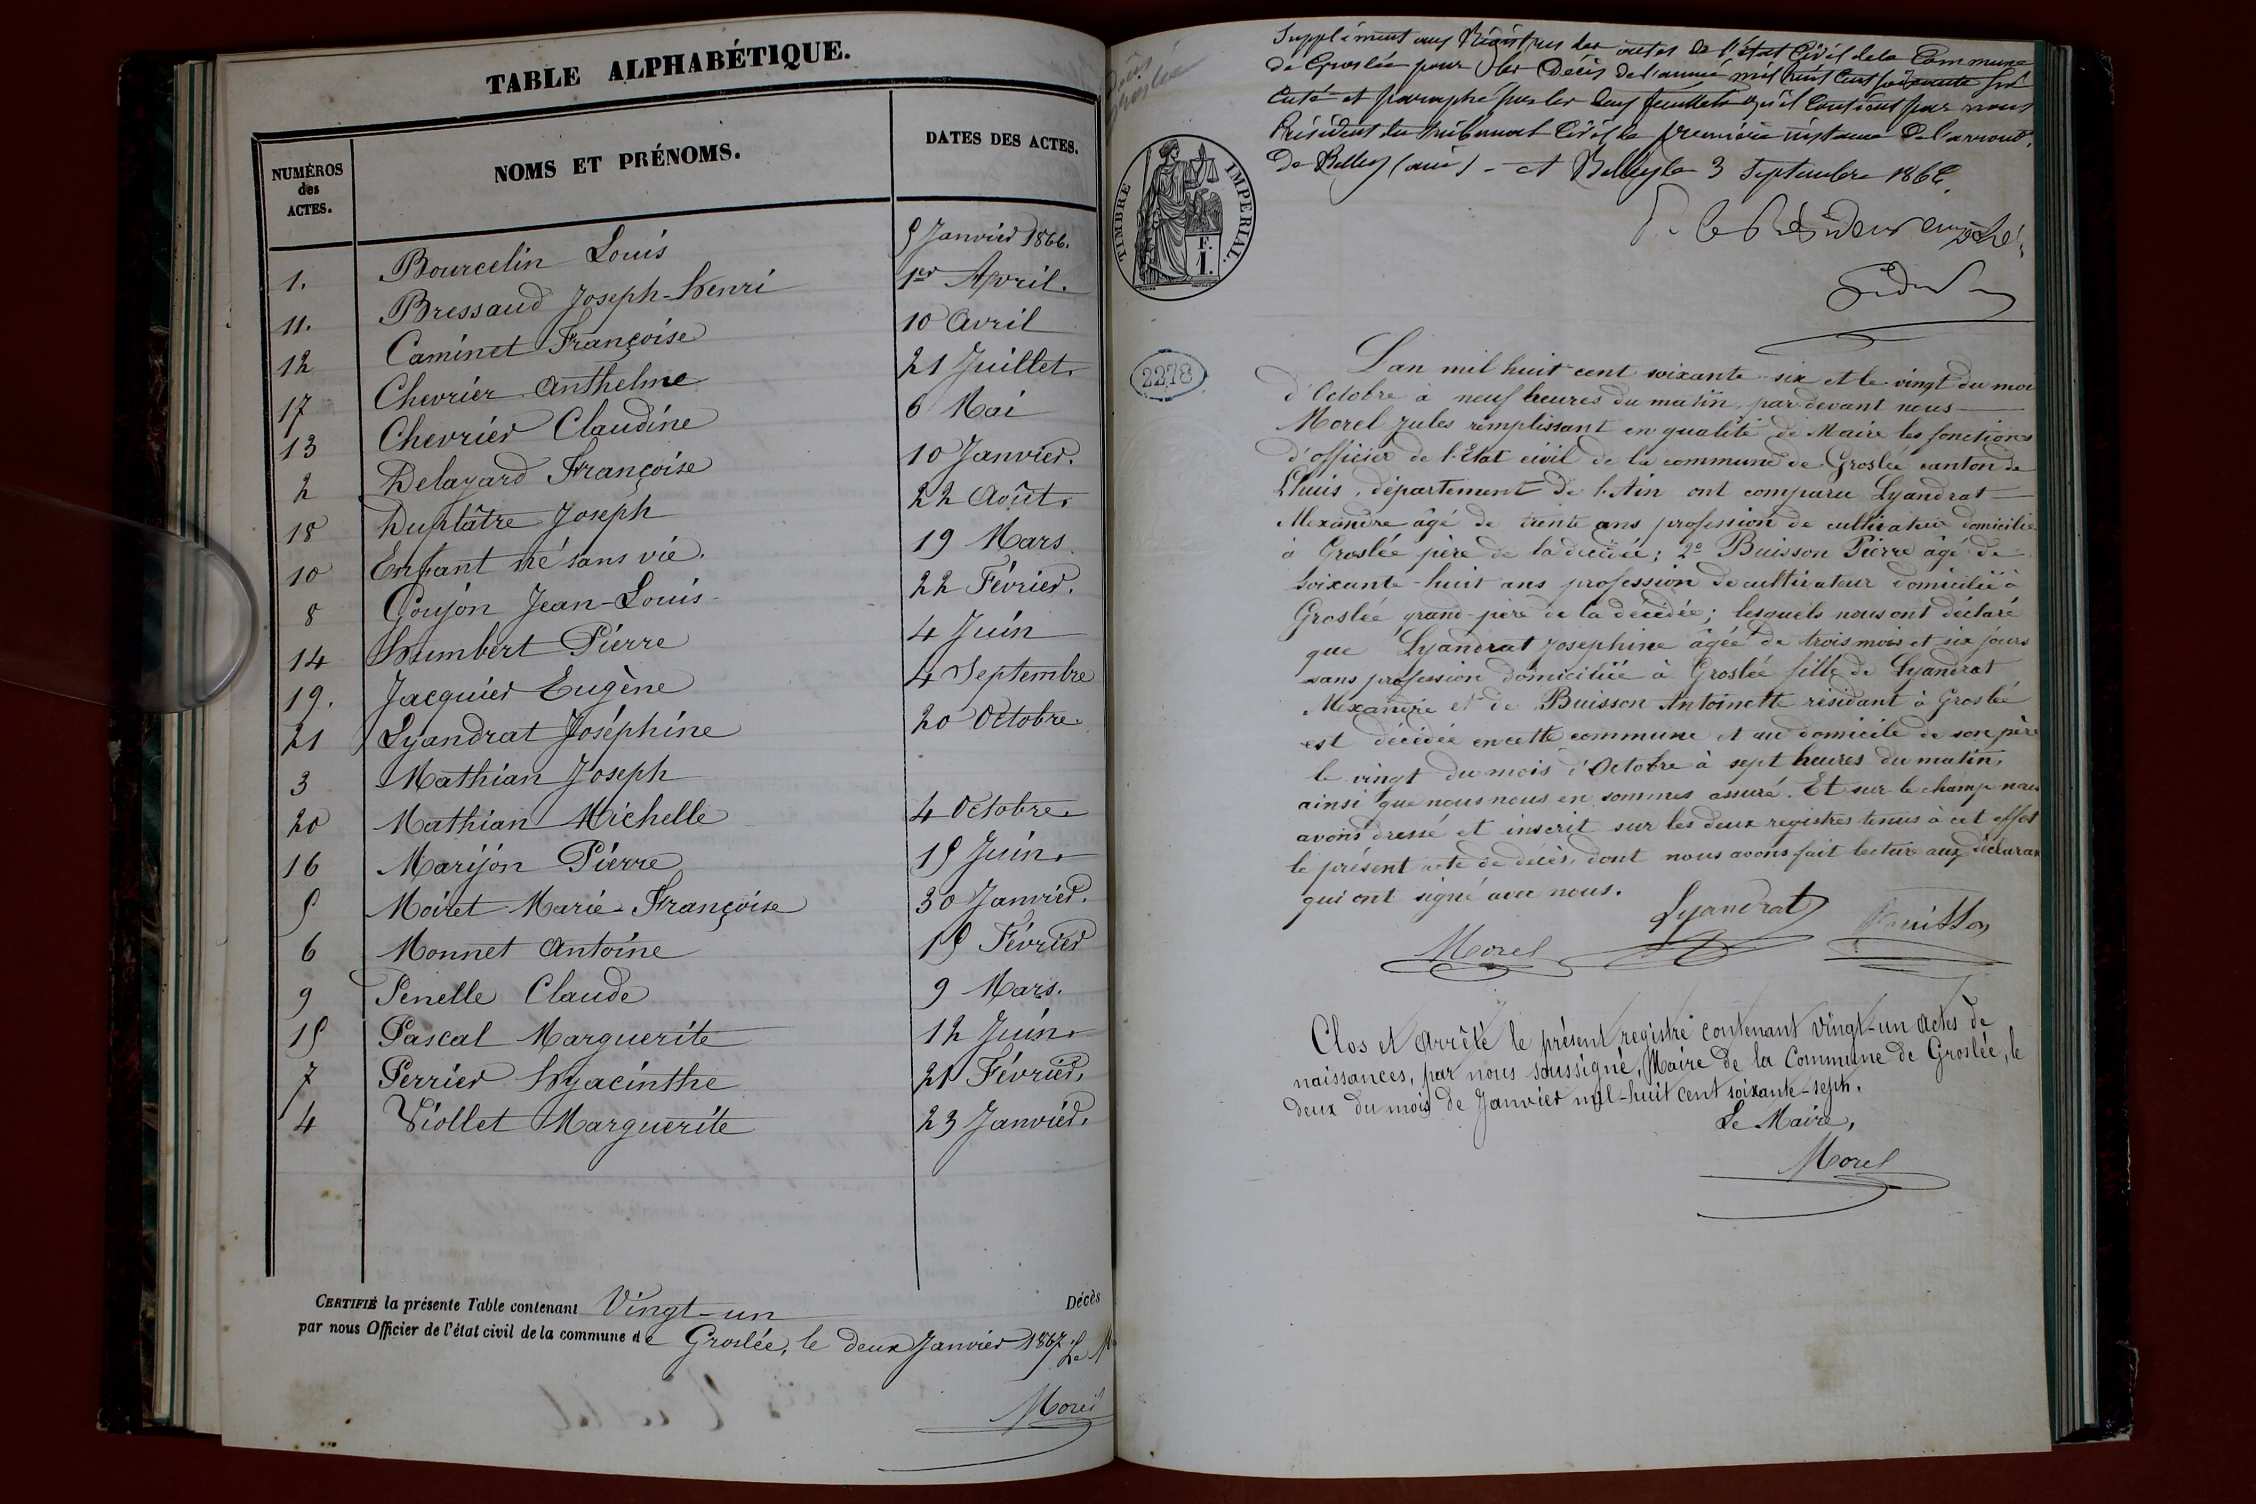 TABLE ALPHABÉTIQUE.
NUMÉROS des ACTES. NOMS ET PRÉNOMS. DATES DES ACTES.
1. Bourcelin Louis 5 Janvier 1866.
11. Bressaud Joseph-Henri 1er Avril.
12 Caminet Françoise 10 Avril
17 Chevrier Anthelme 21 Juillet.
13 Chevrier Claudine 6 Mai
2 Delazard Françoise 10 Janvier.
18 Duplâtre Joseph 22 Août.
10 Enfant né sans vie. 19 Mars
8 Goujon Jean-Louis 22 Février.
14 Humbert Pierre 4 Juin
19. Jacquier Eugène 4 Septembre
21 Lyandrat Joséphine 20 Octobre
3 Mathian Joseph
20 Mathian Michelle 4 Octobre
16 Marijon Pierre 15 Juin.
5 Moiret Marie-Françoise 30 Janvier.
6 Monnet Antoine 15 Février
9 Penelle Claude 9 Mars.
15 Pascal Marguerite 12 Juin
7 Perrier Hyacinthe 21 Février.
4 Viollet Marguerite 23 Janvier.
CERTIFIÉ la présente Table contenant Vingt-un Décès
par nous Officier de l'état civil de la commune de Groslée, le deux Janvier 1867. Le
Morel
Supplément aux Régistres des actes de l'état Civil de la Commune
de Groslée pour les Décès de l'année mil huit cent soixante six
Coté et paraphé par les deux feuillets qu'il contient par nous
Président du tribunal Civil de première instance de l'arrond.
de Belley (ain) - A Belley le 3 Septembre 1866.
TIMBRE IMPERIAL.
F.
1.
2278
L'an mil huit cent soixante-six et le vingt du mois
d'Octobre à neuf heures du matin, par devant nous
Morel Jules remplissant en qualité de Maire les fonctions
d'officier de l'Etat civil de la commune de Groslée canton de
Lhuis, département de l'Ain ont comparu Lyandrat
Alexandre âgé de trente ans profession de cultivateur domicilié
à Groslée père de la décédée; 2° Buisson Pierre âgé de
soixante-huit ans profession de cultivateur domicilié à
Groslée grand-père de la décédée; lesquels nous ont déclaré
que Lyandrat Josephine âgée de trois mois et six jours
sans profession domiciliée à Groslée fille de Lyandrat
Alexandre et de Buisson Antoinette résidant à Groslée
est décédée en cette commune et au domicile de son père
le vingt du mois d'Octobre à sept heures du matin,
ainsi que nous nous en sommes assuré. Et sur le champ nous
avons dressé et inscrit sur les deux registres tenus à cet effet
le présent acte de décès, dont nous avons fait lecture aux déclarants
qui ont signé avec nous.
Morel Lyandrat Buisson
Clos et Arrêté le présent registre contenant vingt-un actes de
naissances, par nous soussigné, Maire de la Commune de Groslée, le
deux du mois de Janvier mil-huit cent soixante-sept.
Le Maire,
Morel